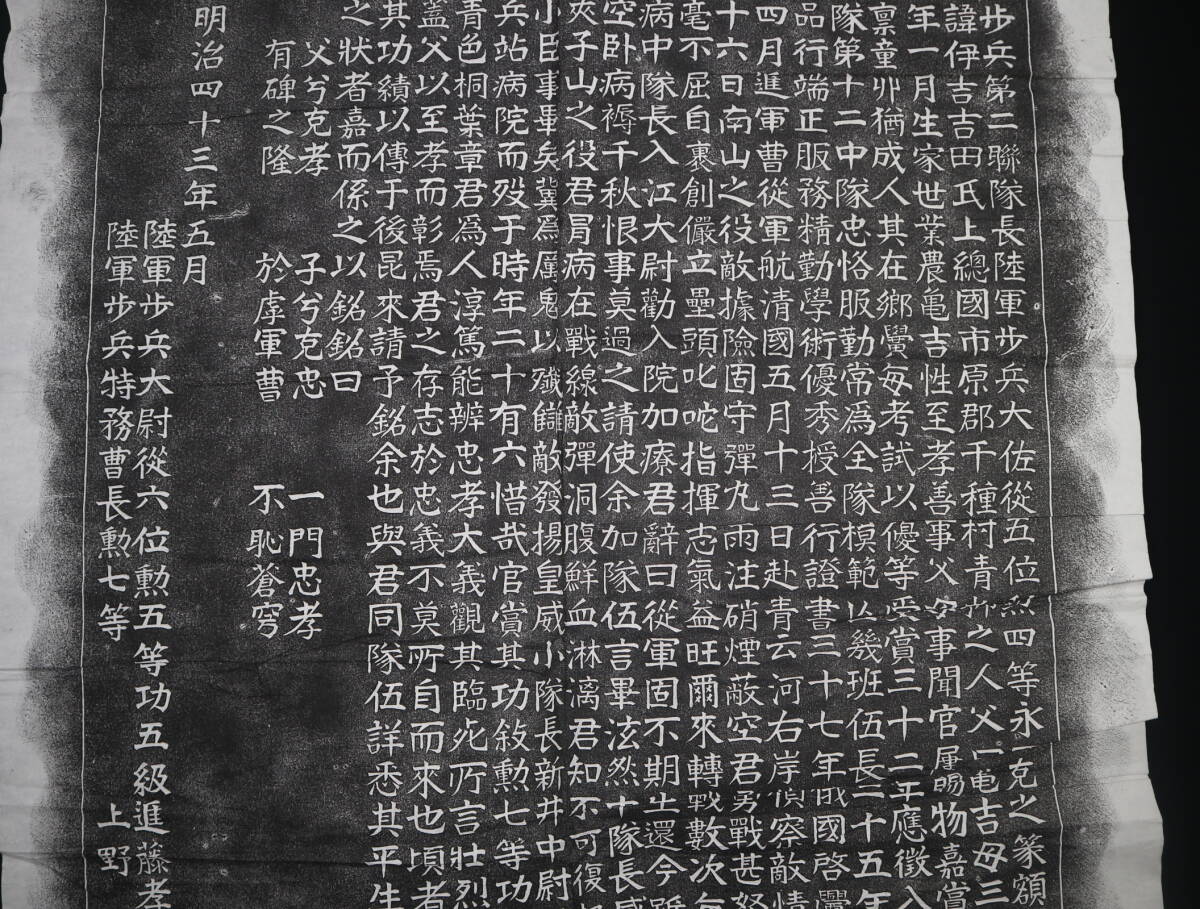 步兵第二聯隊長陸軍步兵大佐從五位勲四等永 克之篆額
諱伊吉吉田氏上總國市原郡千種村青 之人父 亀吉母三
年一月生家世業農亀吉性至孝善事父 事聞官屢賜物嘉賞
禀童丱猶成人其在鄉黌每考試以優等受賞三十二年應徵入
隊第十二中隊忠恪服勤常爲全隊模範 幾班伍長二十五年
品行端正服務精勤學術優秀授善行證書三十七年俄國啓釁
四月進軍曹從軍航清國五月十三日赴青云河右岸偵察敵情
十六日南山之役敵據險固守彈丸雨注硝煙蔽空君勇戰甚努
毫不屈自裹創儼立壘頭叱咤指揮志氣益旺爾來轉戰數次每
病中隊長入江大尉勸入院加療君辭曰從軍固不期生還今
空卧病褥千秋恨事莫過之請使余加隊伍言畢泫然 隊長感
夾子山之役君冐病在戰線敵彈洞腹鮮血淋漓君知不可復
小臣事畢矣冀爲厲鬼以殲讎敵發揚皇威小隊長新井中尉
兵站病院而歿于時年二十有六惜哉官賞其功敘勲七等功
青色桐葉章君爲人淳篤能辨忠孝大義觀其臨死所言壯烈
蓋父以至孝而彰焉君之存志於忠義不莫所自而來也頃者
其功績以傳于後昆來請予銘余也與君同隊伍詳悉其平生
之狀者嘉而係之以銘銘曰
父兮克孝 子兮克忠 一門忠孝
有碑之隆 於虖軍曹 不恥蒼穹
明治四十三年五月
陸軍步兵大尉從六位勲五等功五級進藤孝
陸軍步兵特務曹長勲七等 上野